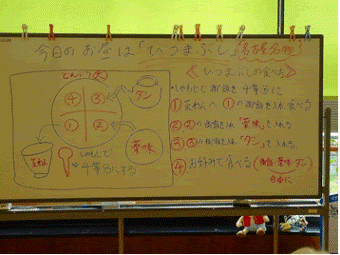 今日のお昼は「ひつまぶし」名古屋名物
《ひつまぶしの食べ方》
どんぶり(大)
④ ③
① ②
タレ
茶わん
しゃもじで
4等分にする
薬味
・しゃもじで 4等分に
① 茶わんへ ①の御飯を入れ食べる
② ②の御飯を入れ「薬味」を入れる
③ ③の御飯を入れ「タレ」を入れる
④ お好みで食べる (御飯・薬味・タレ)
自由に